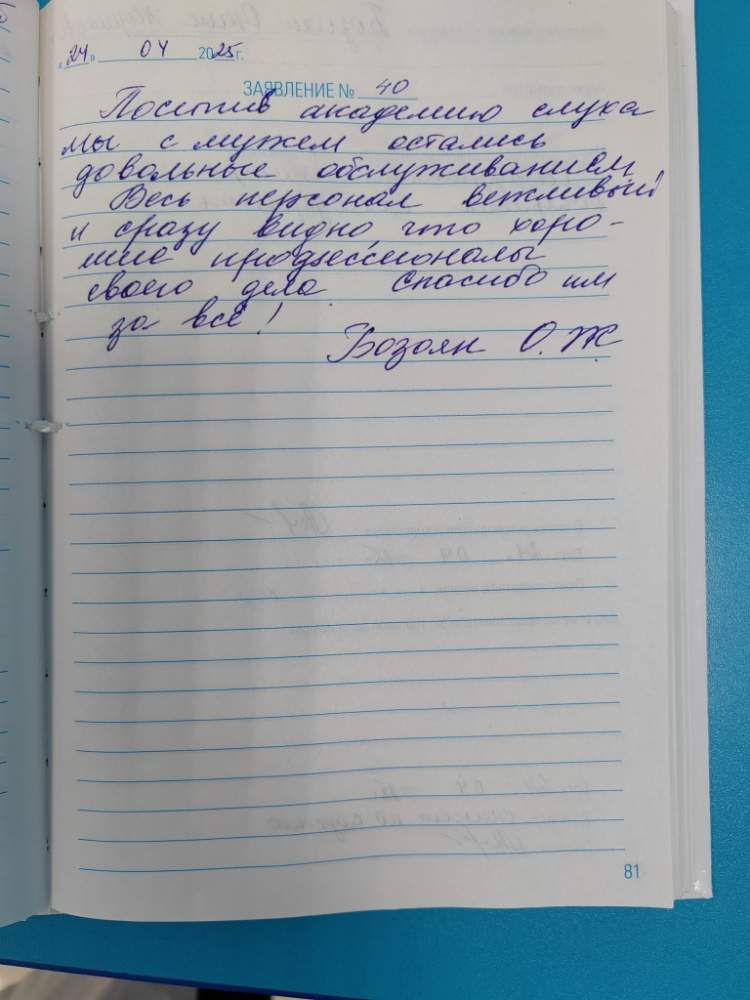 «24» 04 2025г.
ЗАЯВЛЕНИЕ № 40
Посетив академию слуха
мы с мужем остались
довольные обслуживанием.
Весь персонал вежливый
и сразу видно что хоро-
шие профессионалы
своего дела Спасибо им
за всё!
Бозоян О.Ж
81